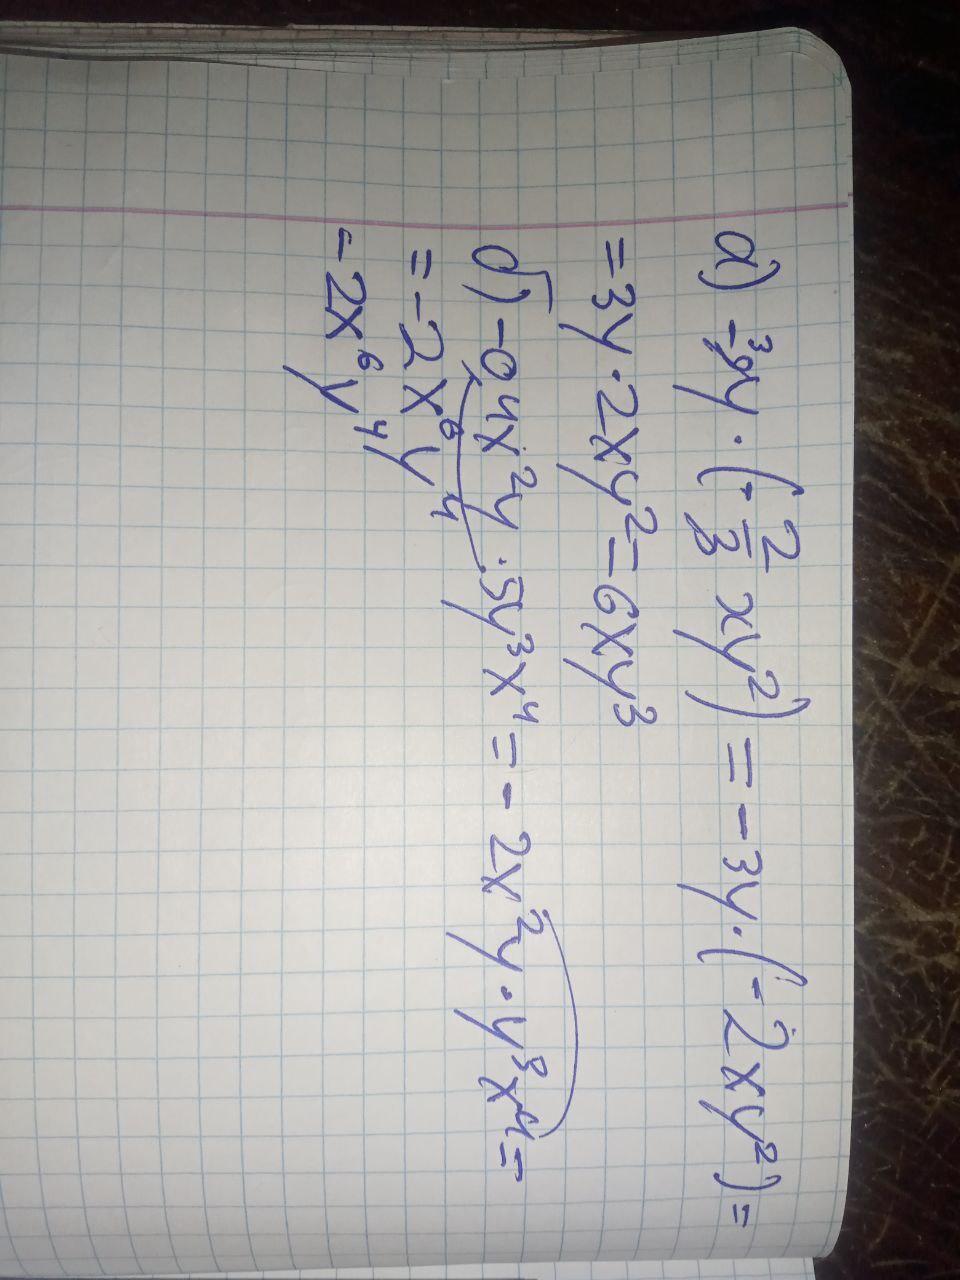 а) -³9y · (-2/3 xy²) = -3y · (-2xy²) =
= 3y · 2xy² = 6xy³
б) -0 4x²y · 5y³x⁴ = - 2x²y · y³x⁴ =
= -2x⁶y⁴
- 2x⁶y⁴